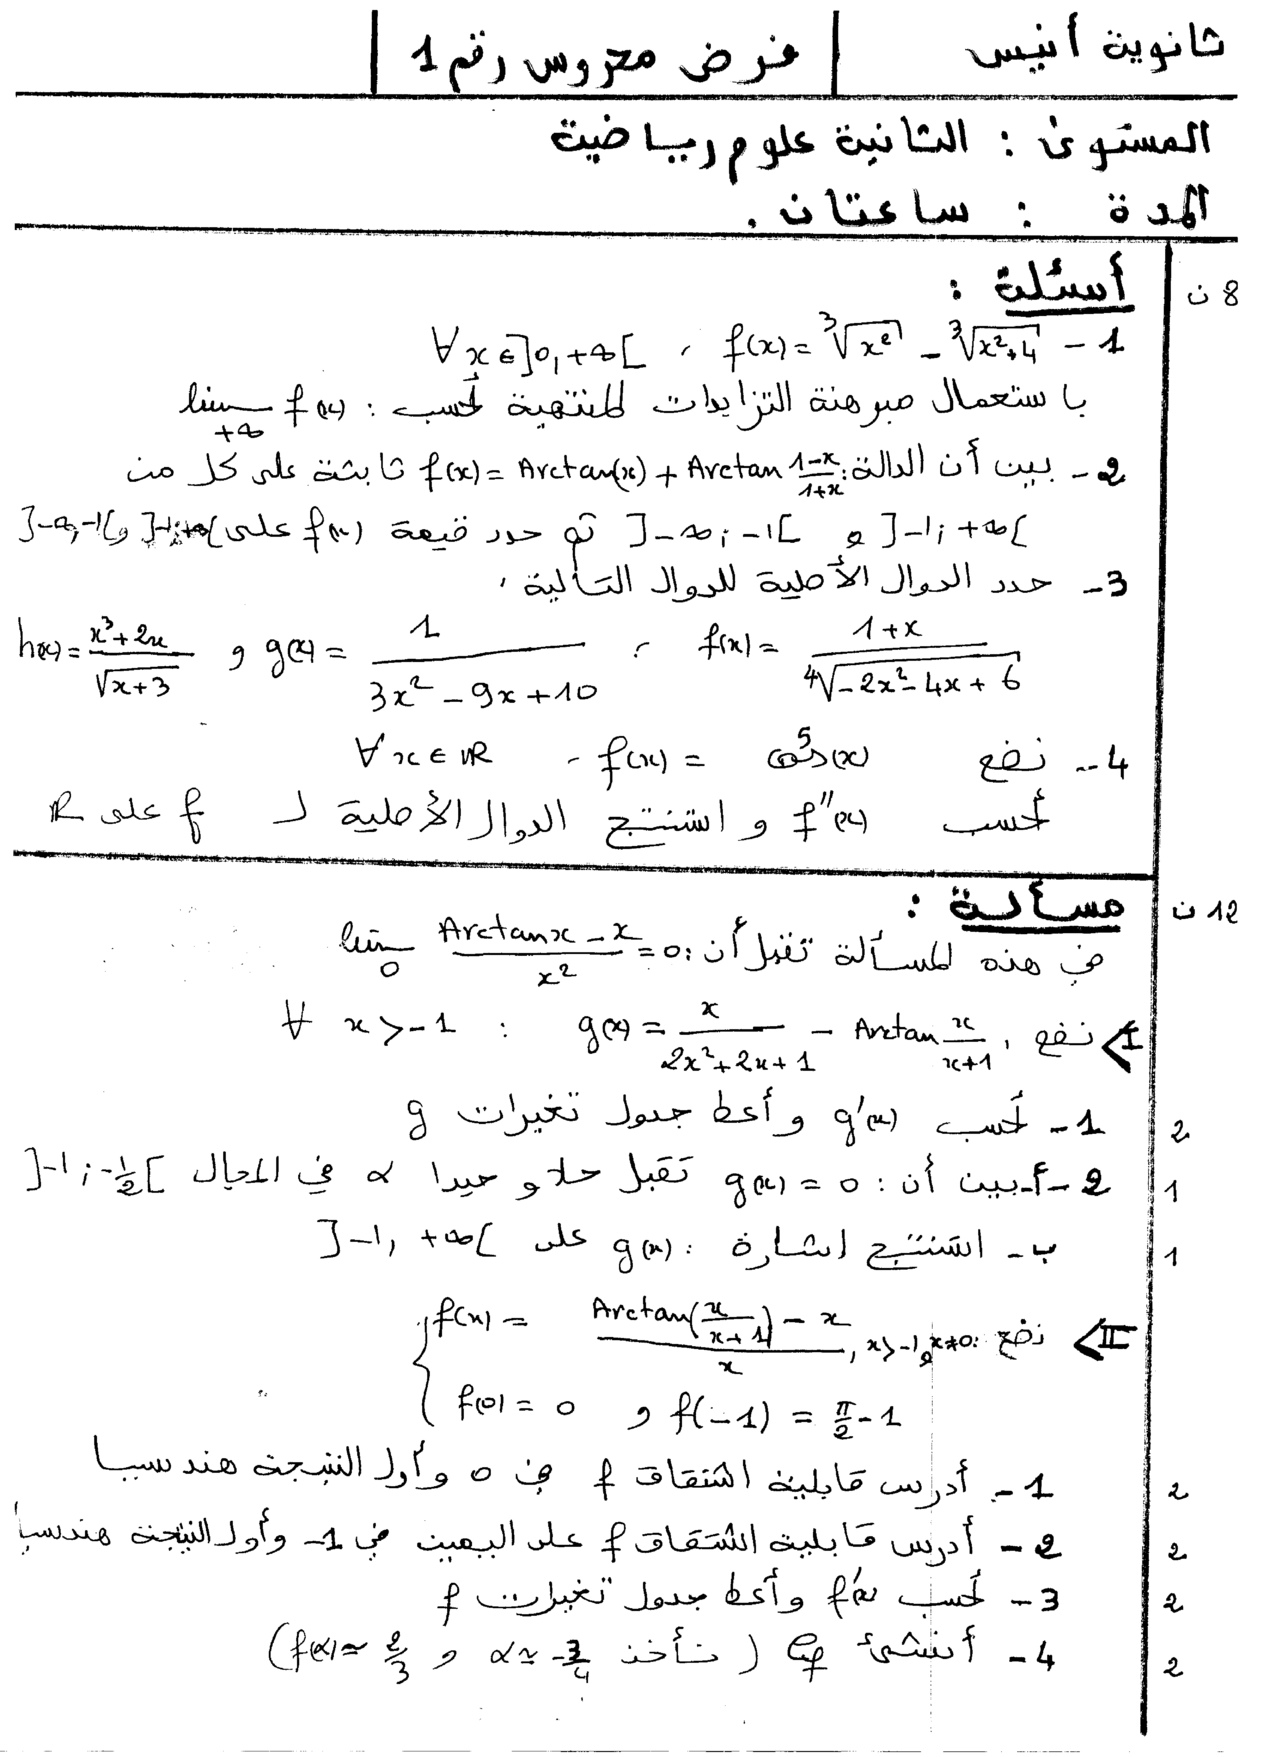 ثانوية أنيس | فرض محروس رقم 1 |
المستوى : الثانية علوم رياضية
المدة : ساعتان .
8 ن
أسئلة :
1 - f(x) = ∛x² - ∛(x²+4) ، ∀x∈]0,+∞[
باستعمال مبرهنة التزايدات المنتهية أحسب : lim f(x) +∞
2 - بين أن الدالة : f(x) = Arctan(x) + Arctan (1-x)/(1+x) ثابتة على كل من
]-1; +∞[ و ]-∞; -1[ ثم حدد قيمة f(x) على ]-1;+∞[ و ]-∞,-1[
3 - حدد الدوال الأصلية للدوال التالية .
f(x) = (1+x)/⁴√(-2x²-4x+6) ، g(x) = 1/(3x²-9x+10) و h(x) = (x³+2x)/√(x+3)
4 - نضع f(x) = cos⁵(x) ، ∀x∈ℝ
أحسب f''(x) و استنتج الدوال الأصلية لـ f على ℝ
12 ن
مسألة :
في هذه المسألة نقبل أن : lim 0 (Arctan x - x)/x² = 0
I> نضع , g(x) = x/(2x²+2x+1) - Arctan x/(x+1) : ∀ x>-1
1 - أحسب g'(x) و أعط جدول تغيرات g 2
2 - أ - بين أن : g(x) = 0 تقبل حلا وحيدا α في المجال ]-1;-1/2[ 1
ب - استنتج إشارة : g(x) على ]-1, +∞[ 1
II> نضع : { f(x) = (Arctan(x/(x+1)) - x)/x , x>-1 و x≠0
f(0) = 0 و f(-1) = π/2 - 1
1 - أدرس قابلية اشتقاق f في 0 وأول النتيجة هندسيا 2
2 - أدرس قابلية اشتقاق f على اليمين في -1 وأول النتيجة هندسيا 2
3 - أحسب f'(x) وأعط جدول تغيرات f 2
4 - أنشئ 𝒞f ( نأخذ α ≃ -3/4 و f(α) ≃ 2/3 ) 2